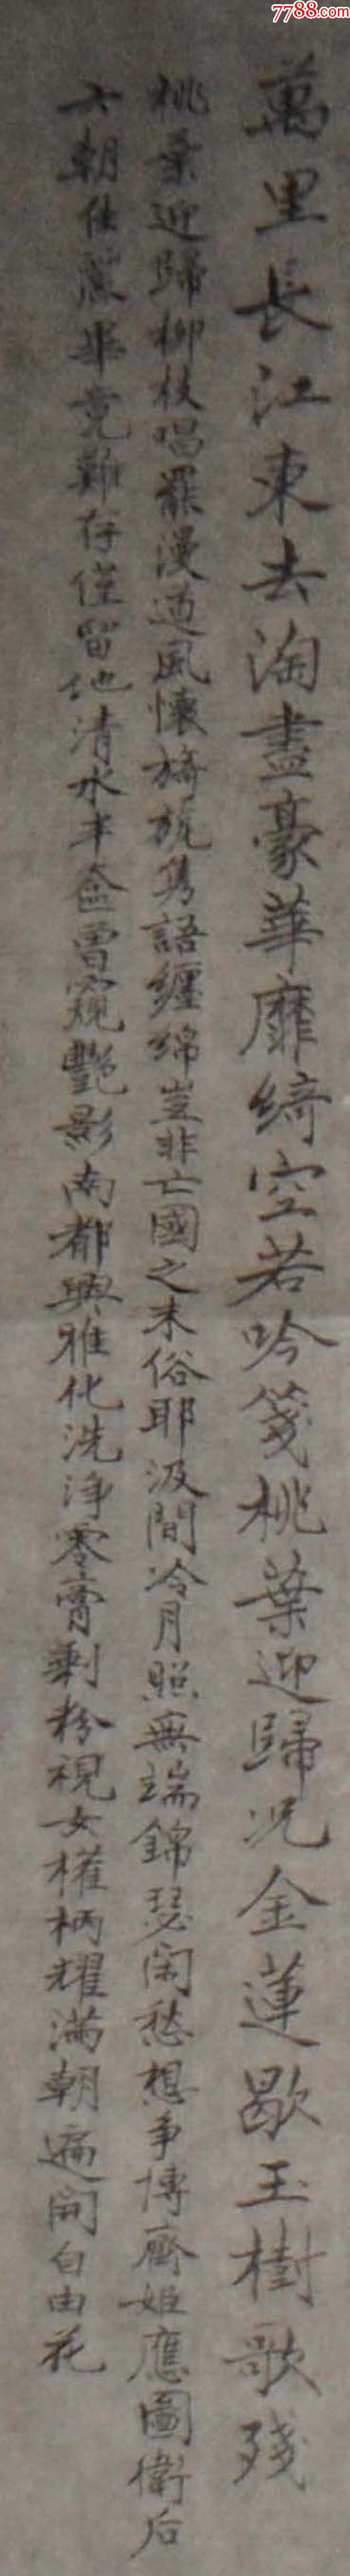 7788.com
萬里長江東去淘盡豪華靡綺空若吟箋桃葉迎歸况金蓮歇玉樹歌殘
桃葉近歸柳枝唱罷漫道風懷旖旎雋語纏綿豈非亡國之末俗耶汲間冷月照無端錦瑟閑愁想爭博齊姬應圖衛后
六朝仕畢竟難存僅留池清水半奩曾窺艷影南都興雅化洗淨零膏剩粉視女權柄耀滿朝遍開自由花